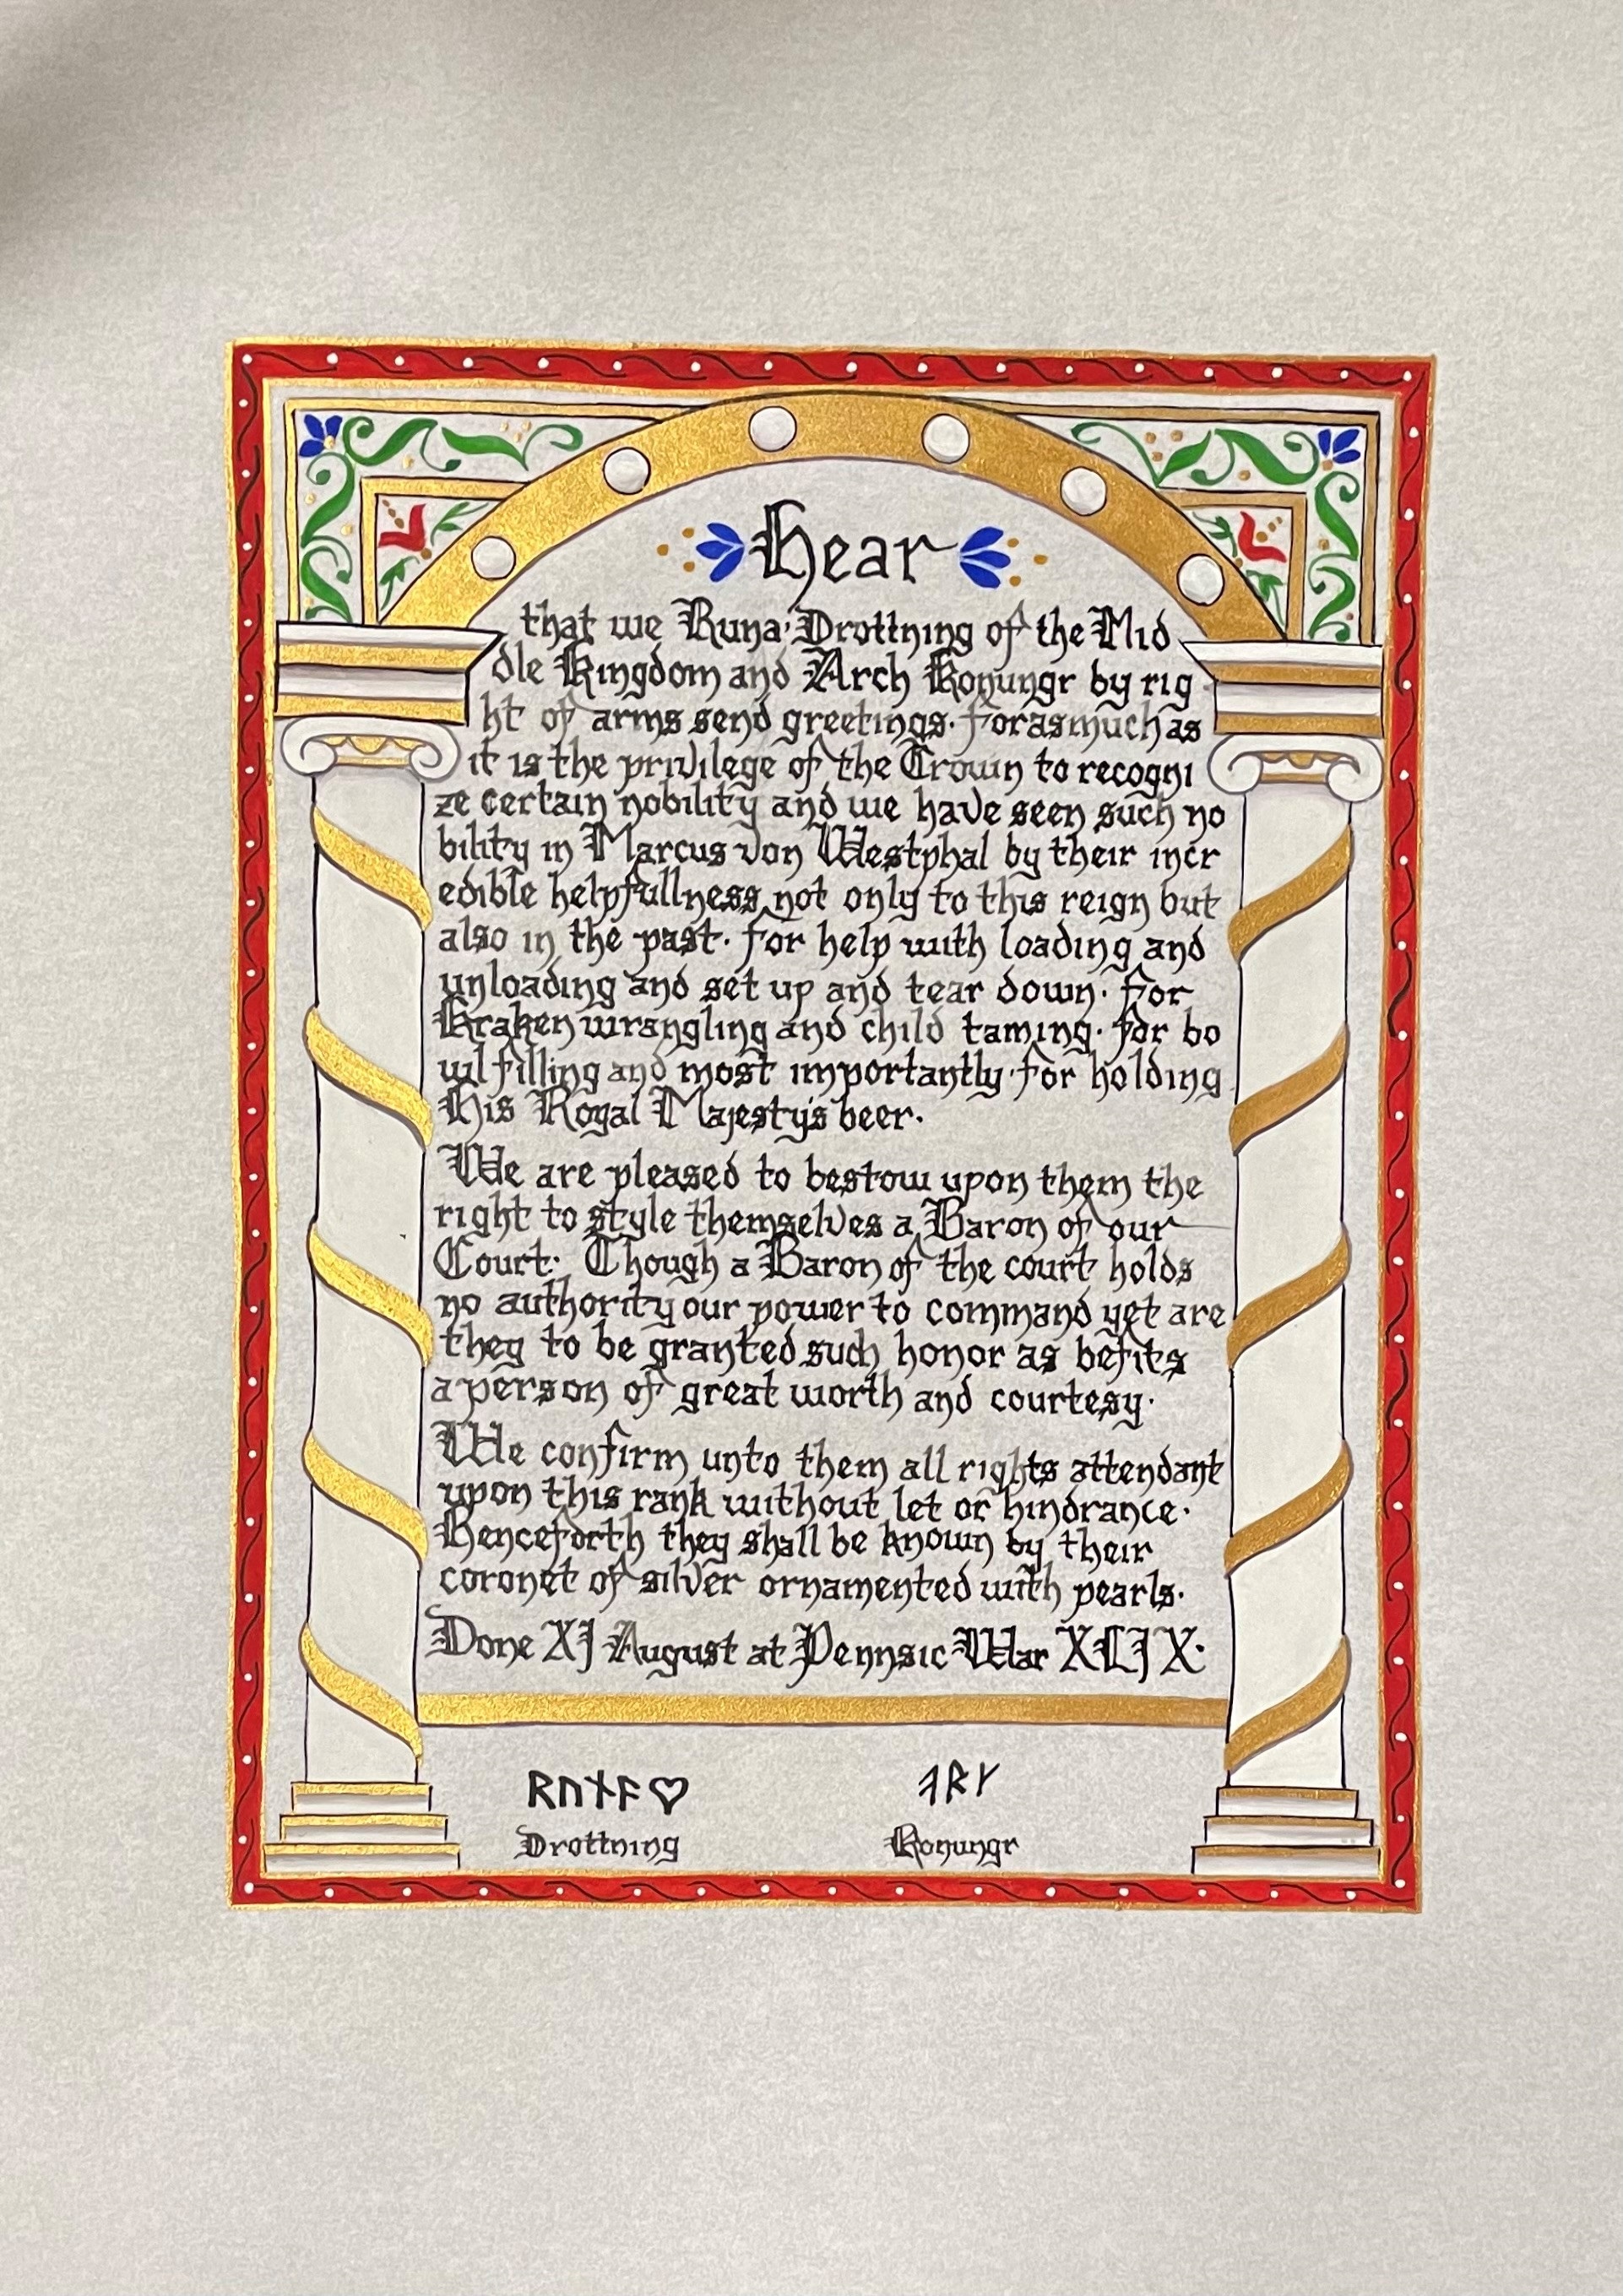 Hear
that we Runa Drottning of the Mid
dle Kingdom and Arch Konungr by rig
ht of arms send greetings. Forasmuch as
it is the privilege of the Crown to recogni
ze certain nobility and we have seen such no
bility in Marcus von Westphal by their incr
edible helpfullness not only to this reign but
also in the past. For help with loading and
unloading and set up and tear down. For
Kraken wrangling and child taming. For bo
wl filling and most importantly. For holding
His Royal Majesty's beer.
We are pleased to bestow upon them the
right to style themselves a Baron of our
Court. Though a Baron of the court holds
no authority our power to command yet are
they to be granted such honor as befits
a person of great worth and courtesy.
We confirm unto them all rights attendant
upon this rank without let or hindrance.
Henceforth they shall be known by their
coronet of silver ornamented with pearls.
Done XI August at Pennsic War XLIX.
ᚱᚢᚾᚨ♡ ᛆᚱᚴ
Drottning Konungr